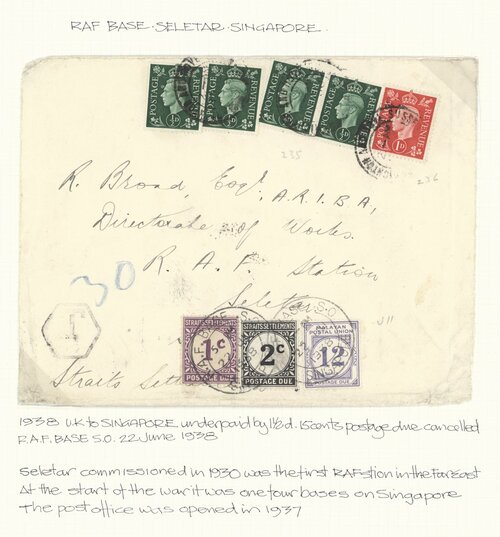 RAF BASE · SELETAR · SINGAPORE.
POSTAGE REVENUE ½D
POSTAGE REVENUE ½D
POSTAGE REVENUE ½D
POSTAGE REVENUE ½D
POSTAGE REVENUE 1D
235
236
R. Broad, Esq., A.R.I.B.A.,
Directorate of Works.
R. A. F. Station
Seletar
30
T
J11
STRAITS SETTLEMENTS 1c POSTAGE DUE
STRAITS SETTLEMENTS 2c POSTAGE DUE
MALAYAN POSTAL UNION 12 POSTAGE DUE
Straits Sett
1938 U.K to SINGAPORE underpaid by 1½d. 15cents postage due cancelled
R.A.F. BASE S.O. 22 June 1938
Seletar commissioned in 1930 was the first RAF stion in the Far East
At the start of the war it was one four bases on Singapore
The post office was opened in 1937